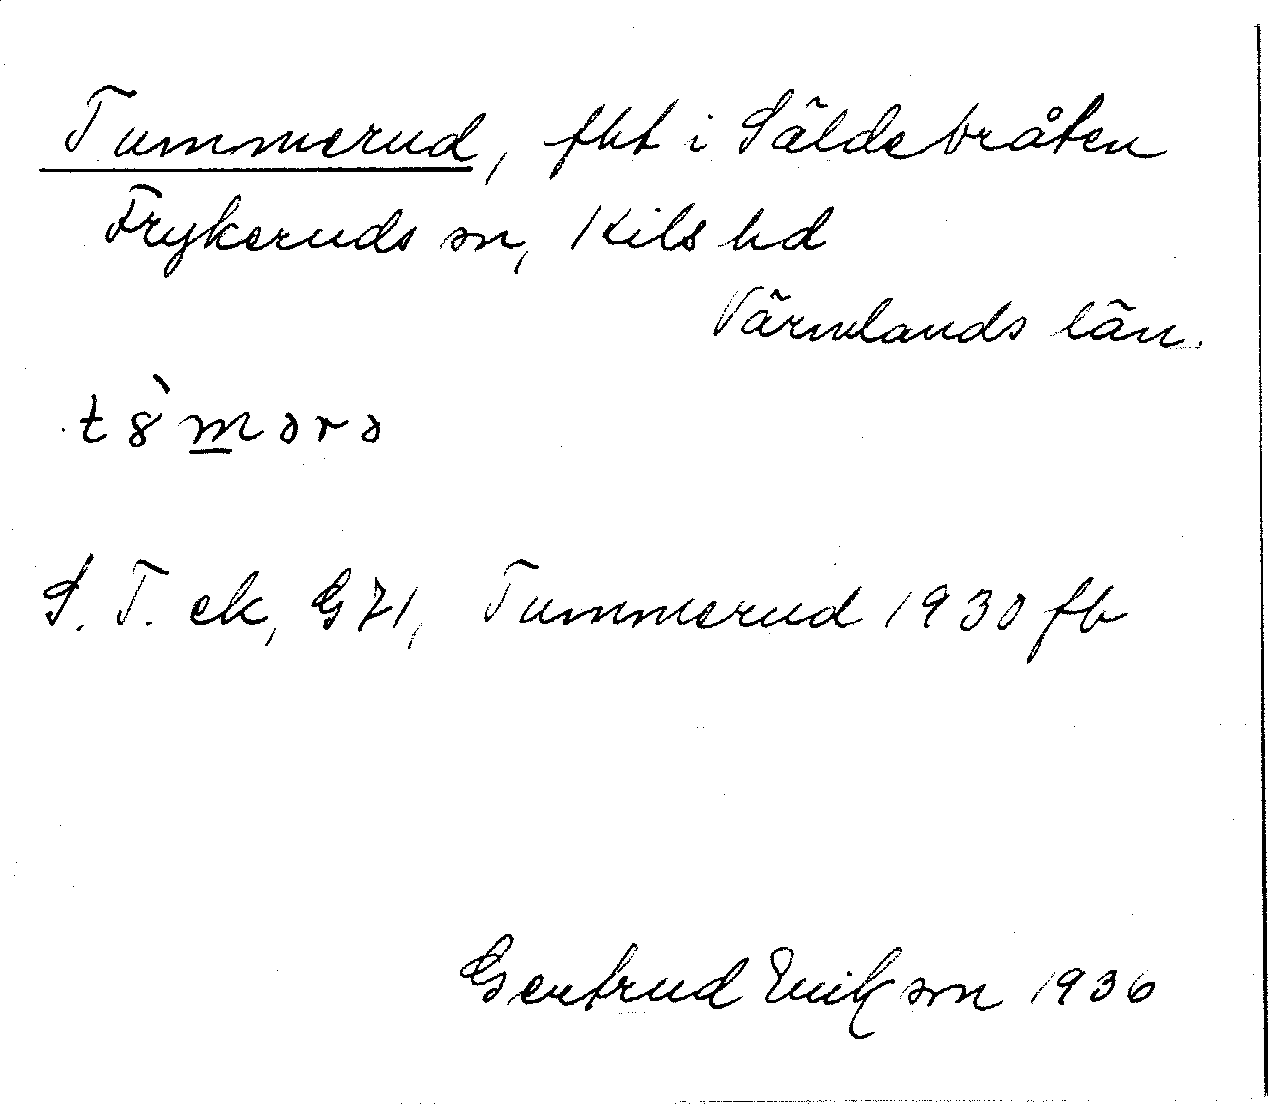 Tummerud, fht i Säldebråten
Frykeruds sn, Kils hd
Värmlands län.
t8̀m̲ərə
S. T. ek, G71, Tummerud 1930 fb
Gertrud Erikson 1936